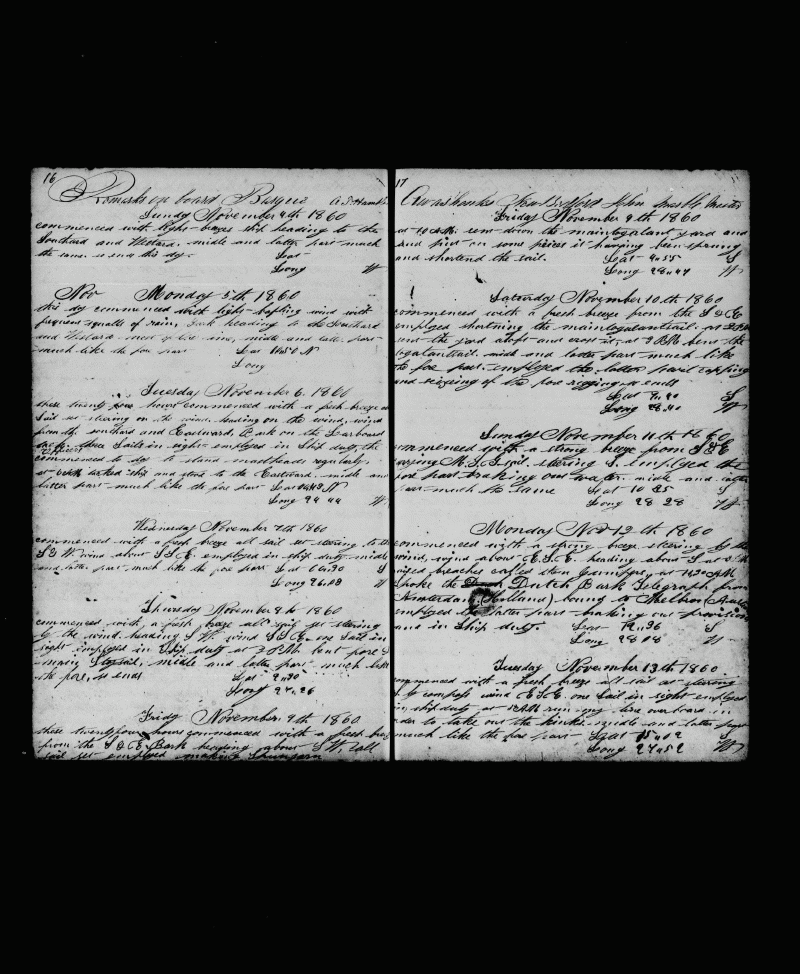 16
Remarks on board Barque
Sunday November 4th 1860
commenced with light breezes ship heading to the
Southard and Westard. midle and latter part much
the same so ends this day. Lat
Long W
Nov Monday 5th 1860
this day commenced with light baffling wind with
frequent squalls of rain, Bark heading to the Southard
and Westard midle and latter part
much like the fore part Lat N
Long
Tuesday November 6. 1860
these twenty four hours commenced with a fresh breeze
Sail set steering on the wind, heading on the wind, wind
from the southard and Eastward, Bark on the Larboard
three Sails in sight employed in Ship duty, the
commenced to stand mastheads regularly,
at tacked ship and stood to the Eastward. midle and
latter part much like the fore part Lat N
Long 24 44 W
Wednesday November 7th 1860
commenced with a fresh breeze all sail set steering to the
S & W. wind about S.S.E. employed in ship duty midle
and latter part much like the fore part Lat S
Long 26.08 W
Thursday November 8th 1860
commenced with a fresh breeze all sail set steering
by the wind heading S W. wind S.S.E. one Sail in
sight employed in Ship duty at 2 P.M. bent fore &
main Staysail, midle and latter part much like
the fore, so ends Lat 2 30
Long 27.26
Friday November 9th 1860
these twentyfour hours commenced with a fresh breeze
from the S & E. Bark heading about S W. all
sail set employed making
17
Awashonks New Bedford
Friday November 9th 1860
at 10 A.M. sent down the maintogalant yard and
and put on some peices it having been sprung
and shortend the sail. Lat 4.55 S
Long 28.47 W
Saturday November 10th 1860
commenced with a fresh breeze from the S & E
employed shortning the maintogalantsail. at
sent the yard aloft and crost it, at 2 P.M. bent the
togalantsail. midle and latter part much like
the fore part. employed the latter part
and of the fore rigging so ends
Lat S
Long 28.40 W
Sunday November 11th 1860
commenced with a strong breeze from S & E
carrying M.T.G. sail. steering S. employed the
fore part breaking out water. midle and latter
part much the same Lat 10 25 S
Long 28 28 W
Monday Nov 12th 1860
commenced with a strong breeze steering by the
wind, wind about E.S.E. heading about S at
raised breaches called them Grampus, at 11.30 A.M.
Spoke the Dutch Bark Telegraph from
Amsterdam (Holland) bound to
employed the latter part braking out provisions
and in Ship duty. Lat 12.36 S
Long 28 18 W
Tuesday November 13th 1860
commenced with a fresh breeze all sail set steering
S by compass wind E.S.E. one Sail in sight employed
in ship duty at run our line overboard in
order to take out the kinks midle and latter part
much like the fore part Lat 15.02 S
Long 27.52 W